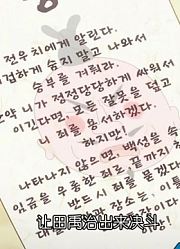 전우치에게 알린다.
겁하게 숨지 말고 나와서
승부를 겨뤄라
약 니가 정정당당하게 싸워서
이긴다면 모든 잘못을 덮고
니 죄를 용서하겠다.
하지만!
나타나지 않으면 백성을
임금을 우롱한 죄로 끝까지
반드시 죄를 묻겠다
장소는, 이틀
让田禹治出来决斗